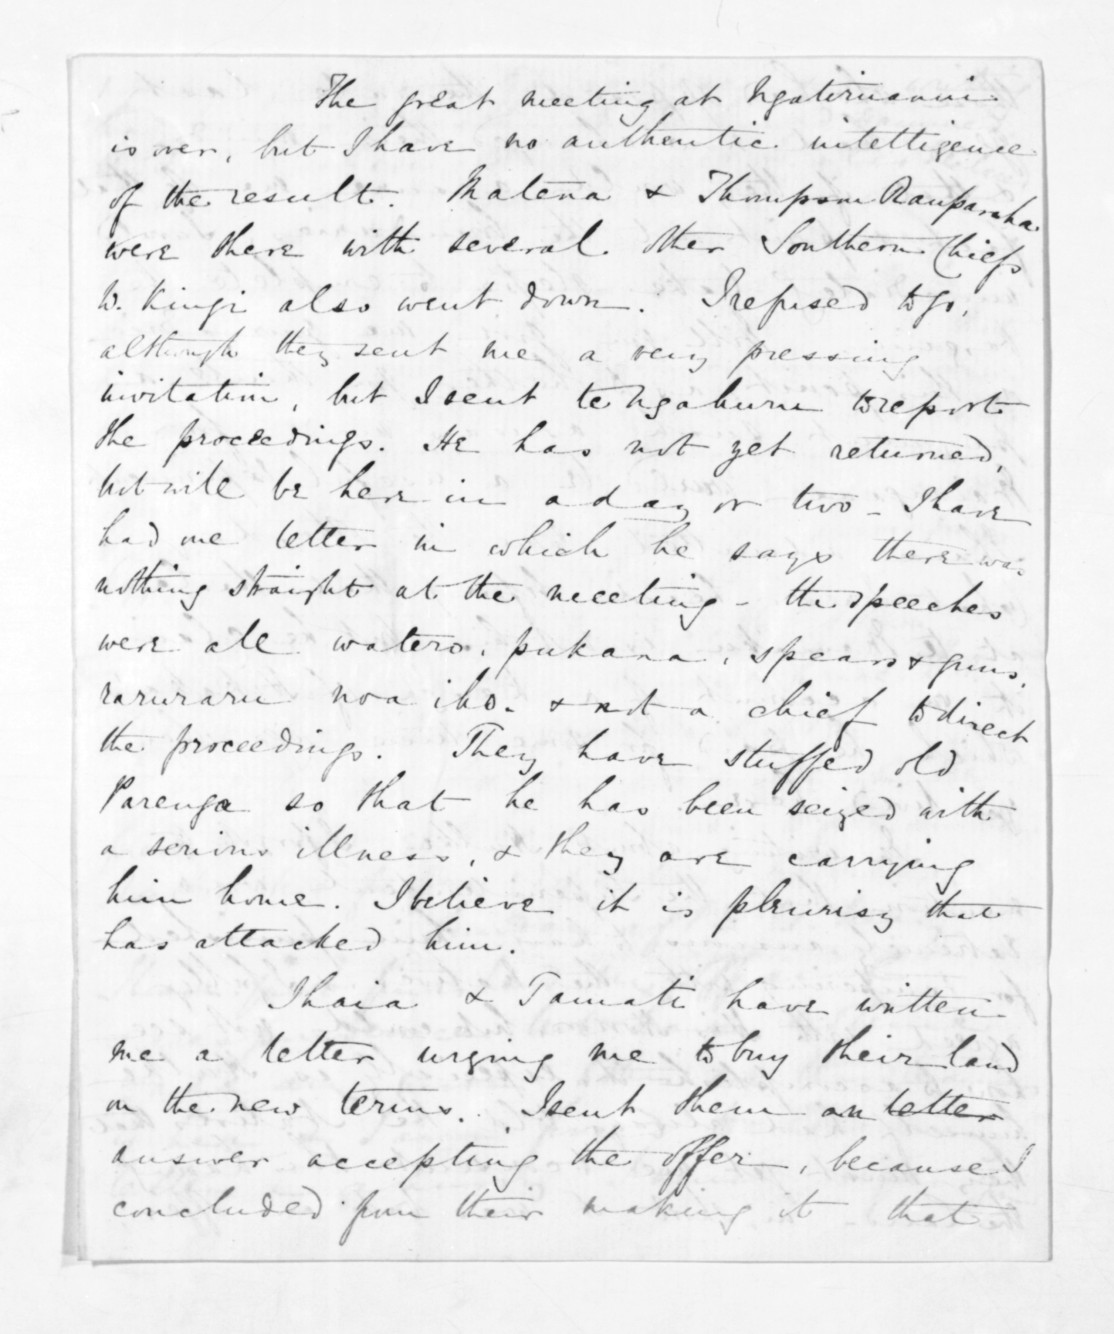 The great meeting at Ngatiruanui
is over, but I have no authentic intelligence
of the result. Matena & Thompson Rauparaha
were there with several other Southern Chiefs
W. Kingi also went down. I refused to go,
although they sent me a very pressing
invitation, but I sent te Ngahuru to report
the proceedings. He has not yet returned,
but will be here in a day or two - I have
had one letter in which he says there was
nothing straight at the meeting - the speeches
were all waters, pukana, spears & guns,
raruraru noa iho. & not a chief to direct
the proceedings. They have stuffed old
Parenga so that he has been seized with
a serious illness, & they are carrying
him home. I believe it is pleurisy that
has attacked him.
Ihaia & Tamati have written
me a letter urging me to buy their land
on the new terms. I sent them an letter
answer accepting the offer, because I
concluded from their making it that